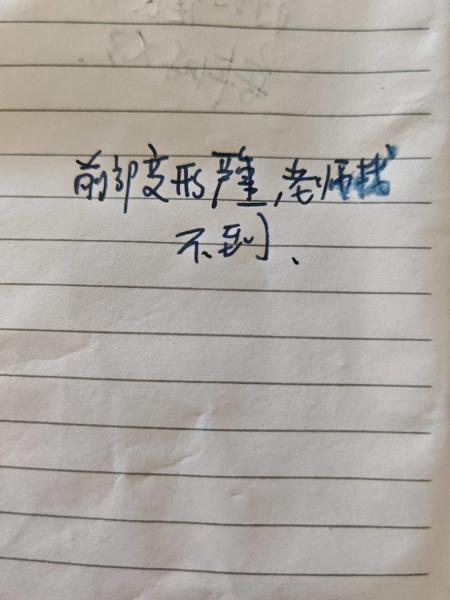 前部变形严重,老师
不到、